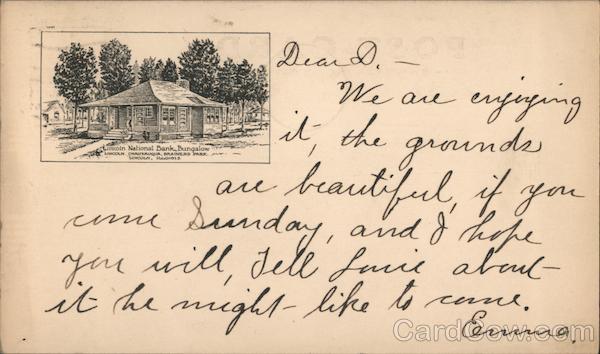 Dear D. —
We are enjoying
it, the grounds
are beautiful, if you
come Sunday, and I hope
you will, Tell Louie about
it he might like to come.
Emma.
Lincoln National Bank Bungalow
Lincoln Chautauqua, Brainerd Park
Lincoln, Illinois
CardCow.com